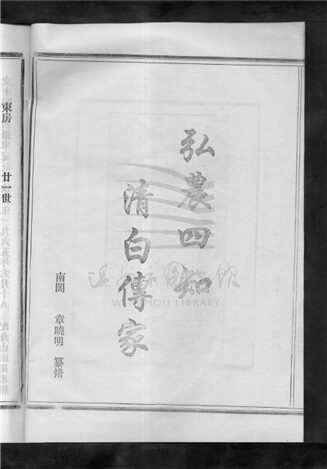 弘農四知
清白傳家
南閣 章曉明 纂脩
東房 廿一世
WENZHOU LIBRARY